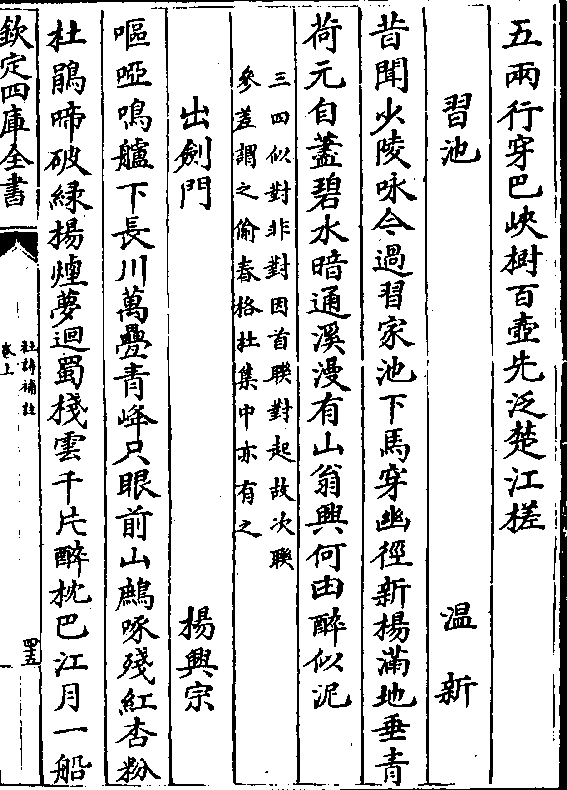 五兩行穿巴峽樹百壺先泛楚江槎
習池
温新
昔聞少陵咏今過習家池下馬穿幽徑新楊滿地垂青
荷元自蓋碧水暗通溪漫有山翁興何由醉似泥
三四似對非對因首聯對起故次聯
參差謂之偷春格杜集中亦有之
出劍門
楊興宗
嘔啞鳴艫下長川萬疊青峰只眼前山鷓啄殘紅杏粉
杜鵑啼破緑楊煙夢迴蜀棧雲千片醉枕巴江月一船
欽定四庫全書
卷上
四五